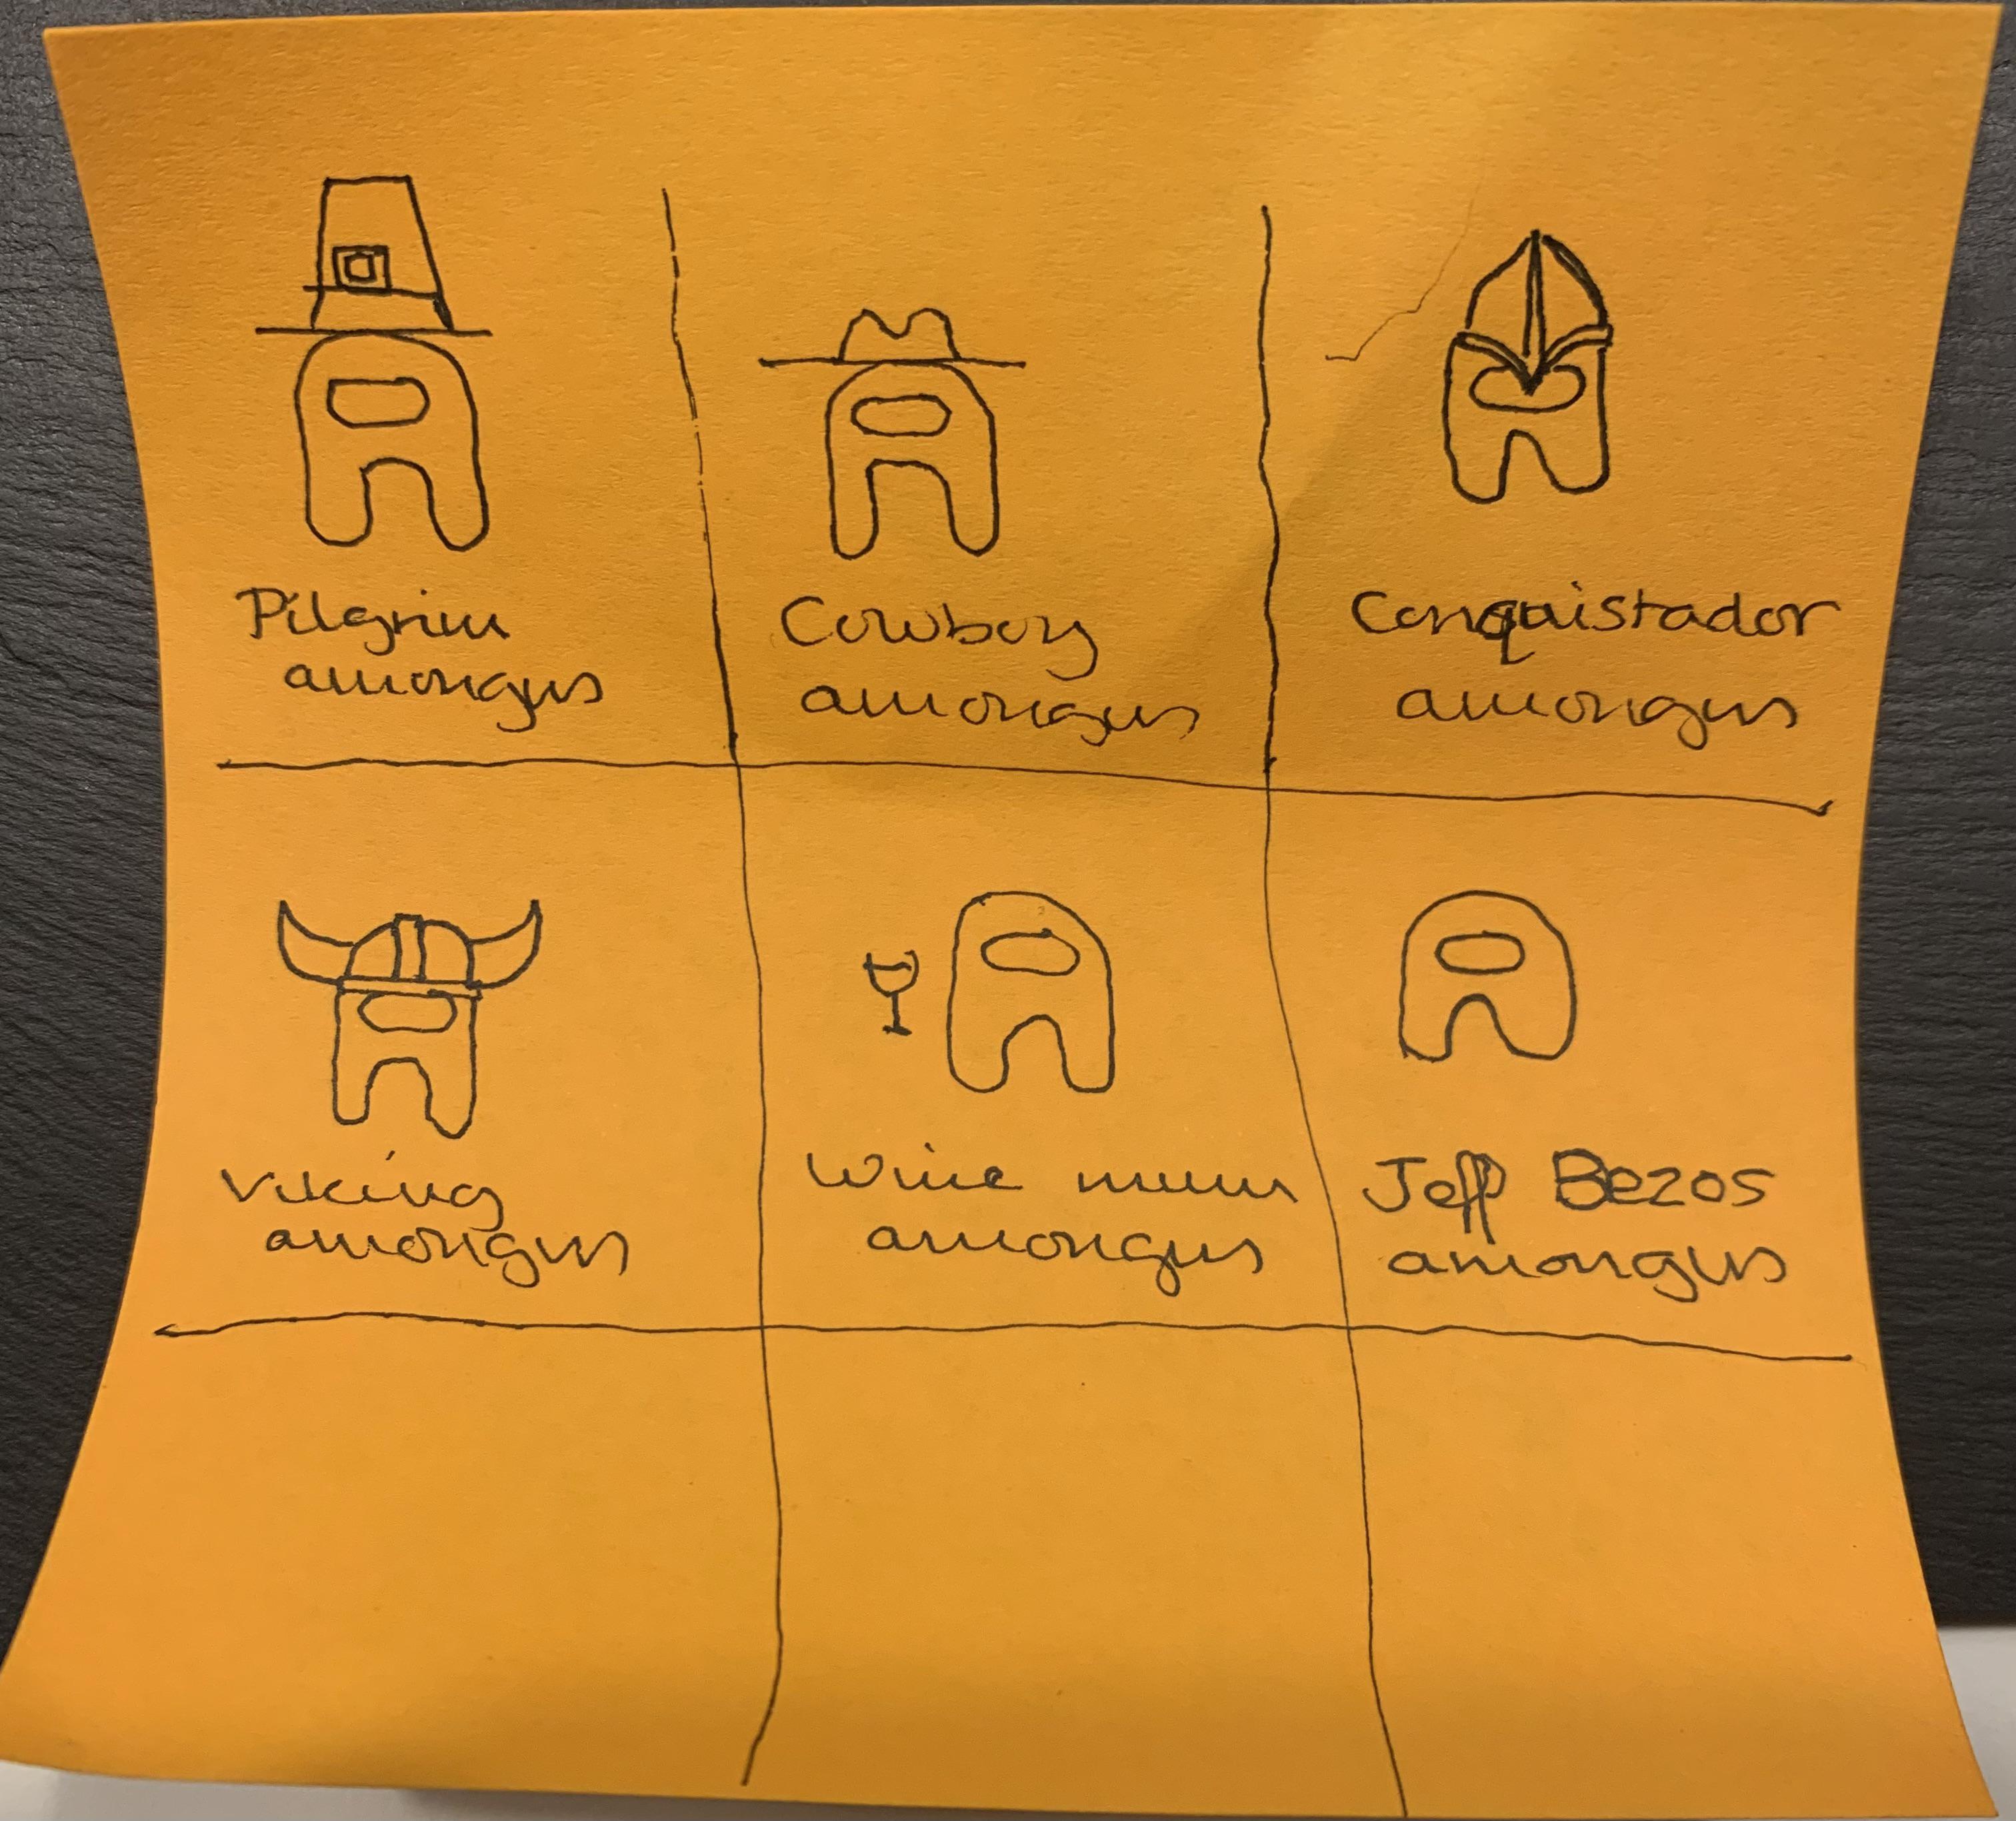 Pilgrim
amongus
Cowboy
amongus
Conquistador
amongus
Viking
amongus
Wine mum
amongus
Jeff Bezos
amongus